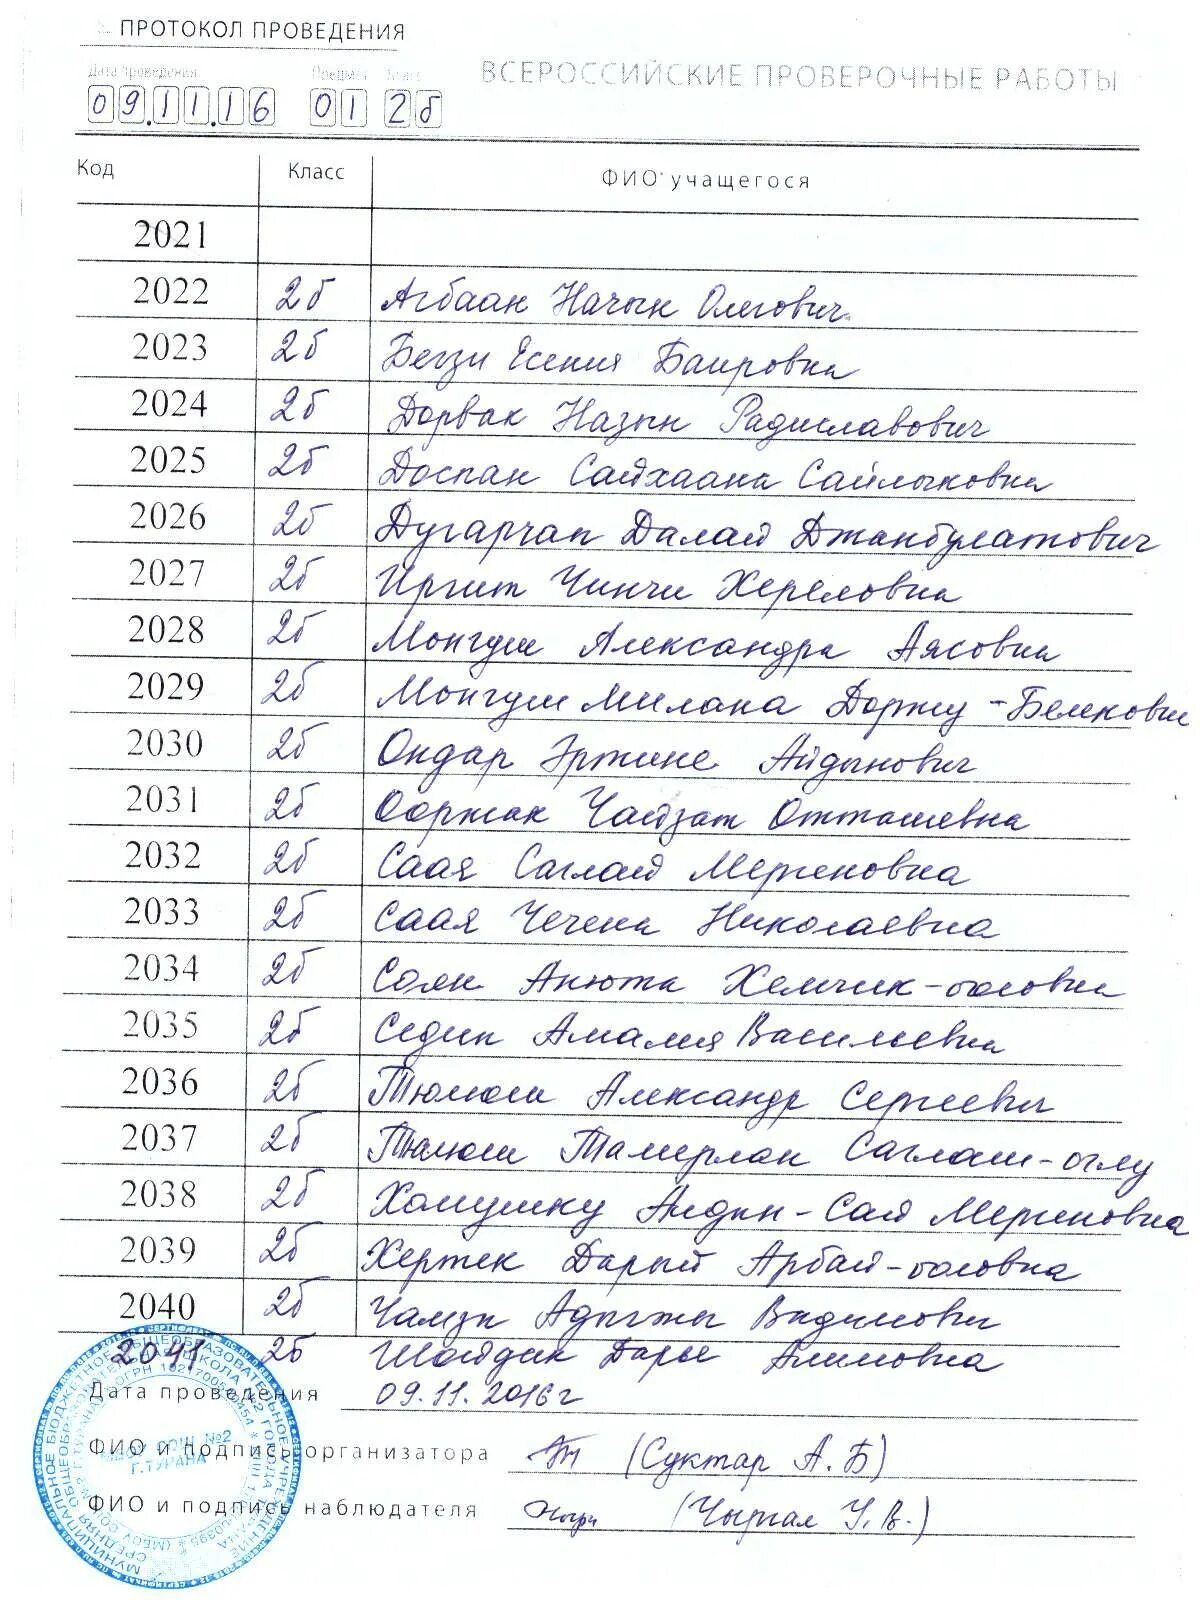 ПРОТОКОЛ ПРОВЕДЕНИЯ
Дата проведения Предмет Класс ВСЕРОССИЙСКИЕ ПРОВЕРОЧНЫЕ РАБОТЫ
09.11.16 01 2б
Код Класс ФИО учащегося
2021
2022 2б Агбаан Начын Олегович
2023 2б Бегзи Есения Баировна
2024 2б Дорвак Назын Радиславович
2025 2б Доспан Сайхаана Сайлыковна
2026 2б Дугарчап Далай Джанбулатович
2027 2б Иргит Чинчи Хереловна
2028 2б Монгуш Александра Аясовна
2029 2б Монгуш Милана Доржу-Белековн
2030 2б Ондар Эртине Айдынович
2031 2б Ооржак Чайзат Отташевна
2032 2б Саая Саглай Мергеновна
2033 2б Саая Чечена Николаевна
2034 2б Соян Анюта Хемчик-ооловна
2035 2б Седип Амалия Васильевна
2036 2б Тюлюш Александр Сергеевич
2037 2б Тюлюш Тамерлан Саглаш-оглу
2038 2б Хомушку Айдын-Сай Мергеновна
2039 2б Хертек Дарый Арбай-ооловна
2040 2б Чамзы Адыгжы Вадимович
2041 2б Шойдак Дарья Алимовна
Дата проведения 09.11.2016г
ФИО и подпись организатора (Суктар А.Б)
ФИО и подпись наблюдателя (Чыргал У.В.)
МБОУ СОШ №2
Г.ТУРАНА